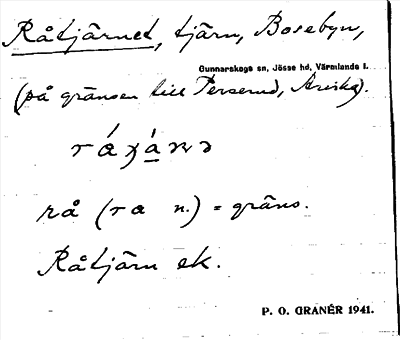 Råtjärnet, tjärn, Bosebyn,
Gunnarskogs sn, Jösse hd, Värmlands l.
(på gränsen till Perserud, Arvika).
rå (ra n.) = gräns.
Råtjärn ek.
P. O. GRANÉR 1941.